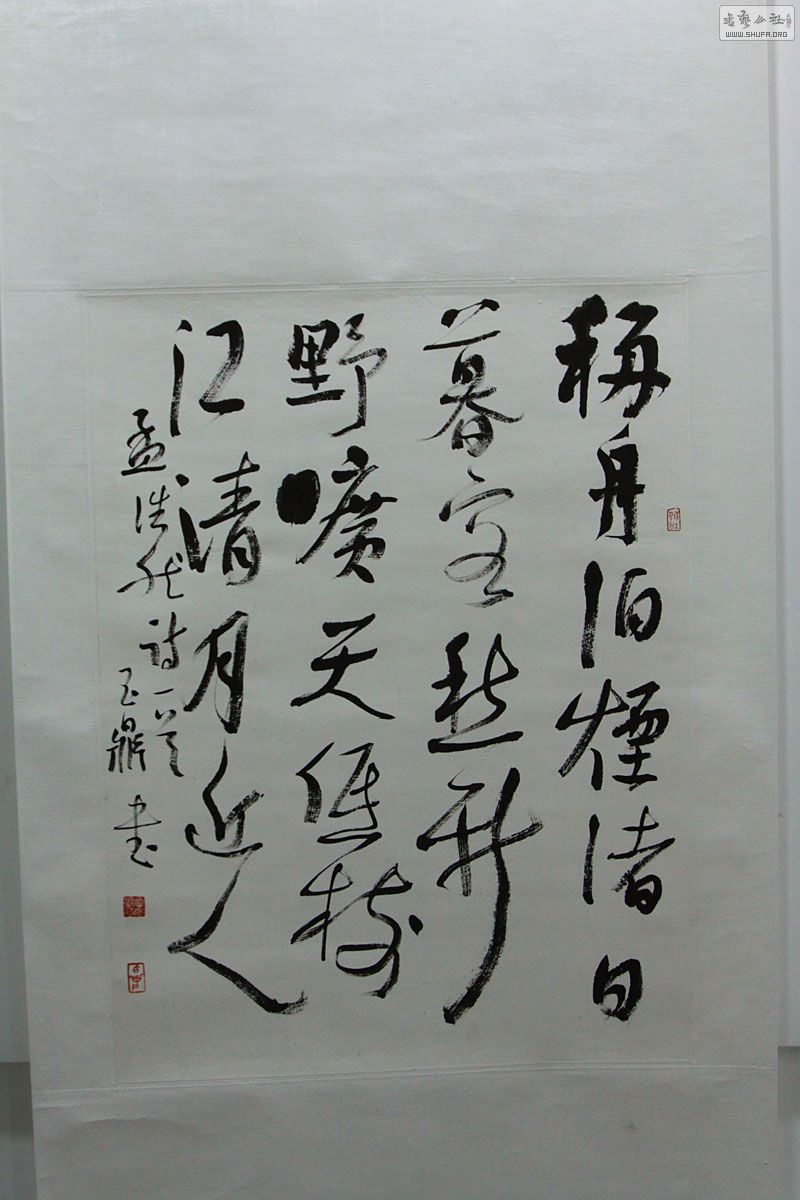 移舟泊煙渚日
暮客愁新
野曠天低樹
江清月近人
孟浩然詩一首
玉鼎書
書藝公社
WWW.SHUFA.ORG